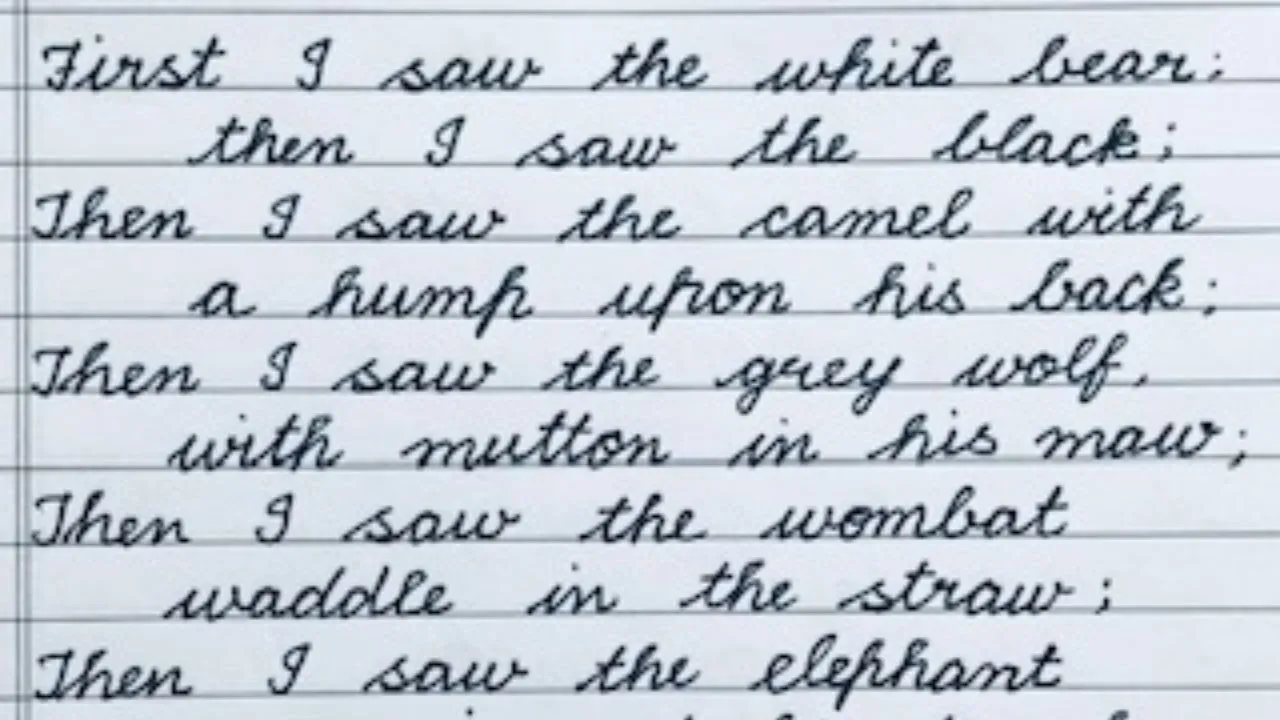 First I saw the white bear;
then I saw the black;
Then I saw the camel with
a hump upon his back;
Then I saw the grey wolf,
with mutton in his maw;
Then I saw the wombat
waddle in the straw;
Then I saw the elephant